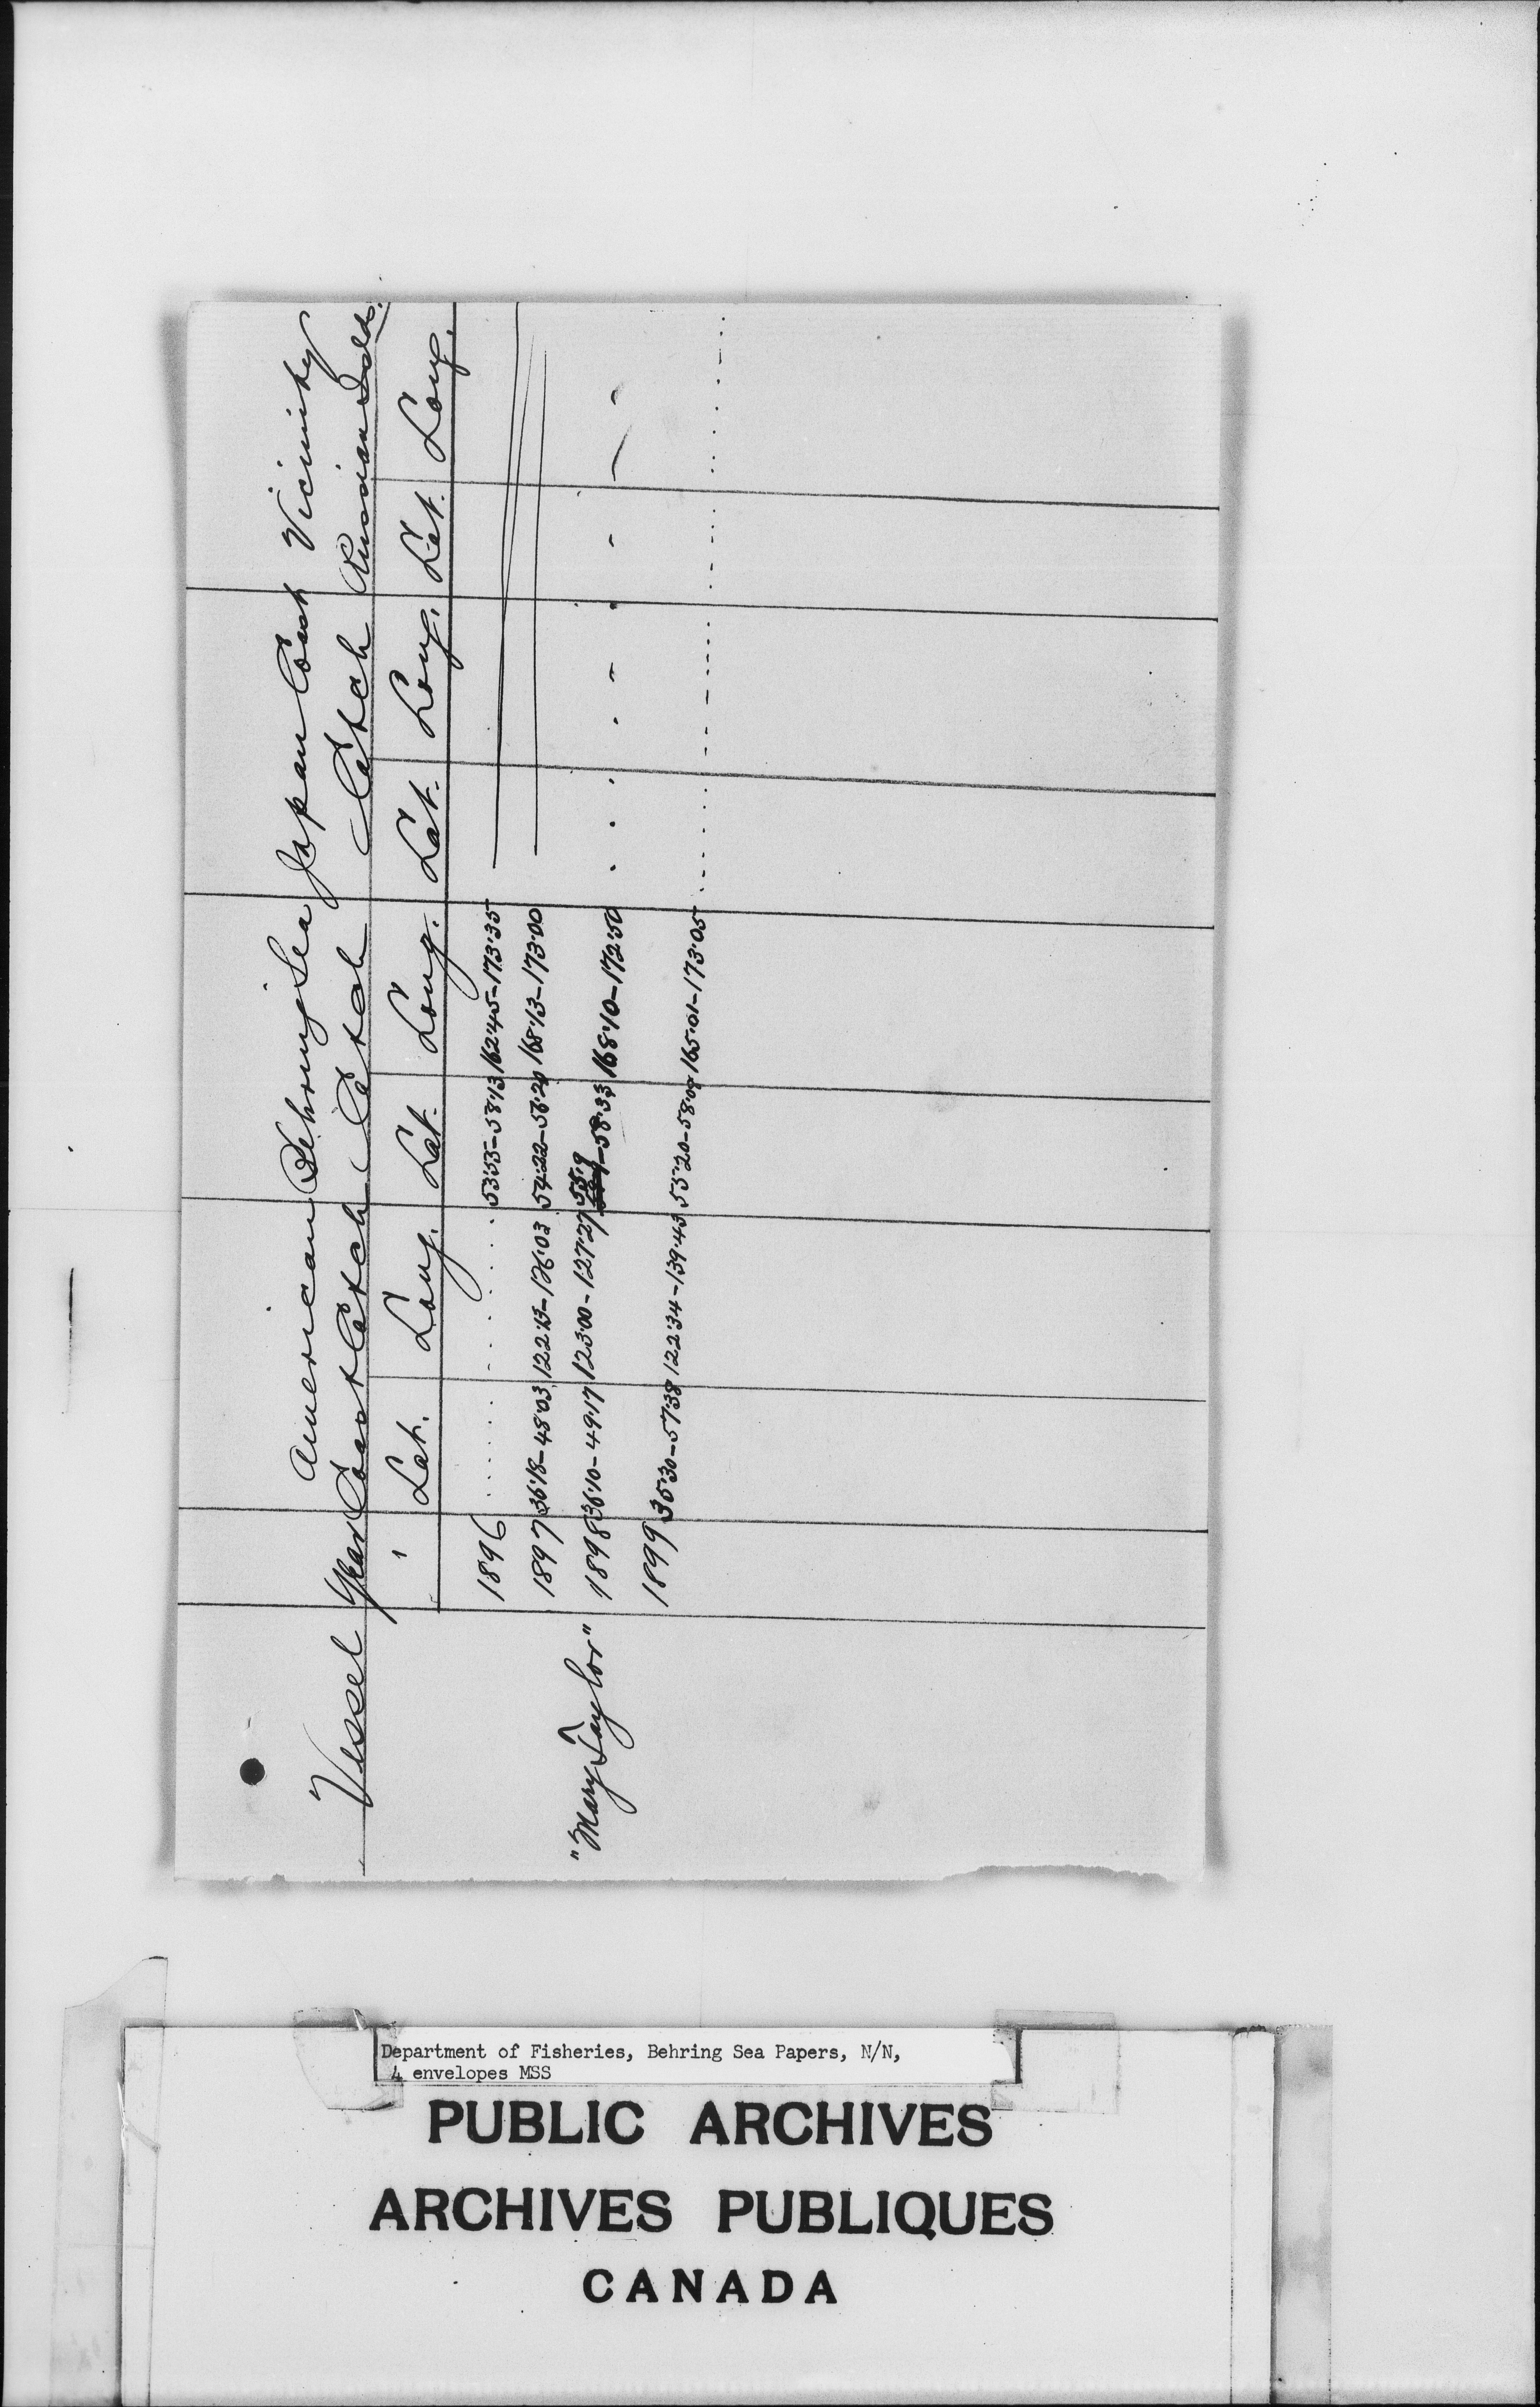 American Behring Sea Japan Coast Vicinity
Vessel Year Coast Catch Catch Catch Russian Islds.
" Lat. Long. Lat. Long. Lat. Long. Lat. Long.
1896 53·53-58·13 162·45-173·35
1897 36·18-48·03 122·13-126·03 54·22-56·20 168·13-173·00
"Mary Taylor" 1898 36·10-49·17 123·00-127·27 55·9-58·33 168·10-172·50
1899 35·30-57·38 122·34-139·43 55·20-58·09 165·01-173·05
Department of Fisheries, Behring Sea Papers, N/N,
4 envelopes MSS
PUBLIC ARCHIVES
ARCHIVES PUBLIQUES
CANADA